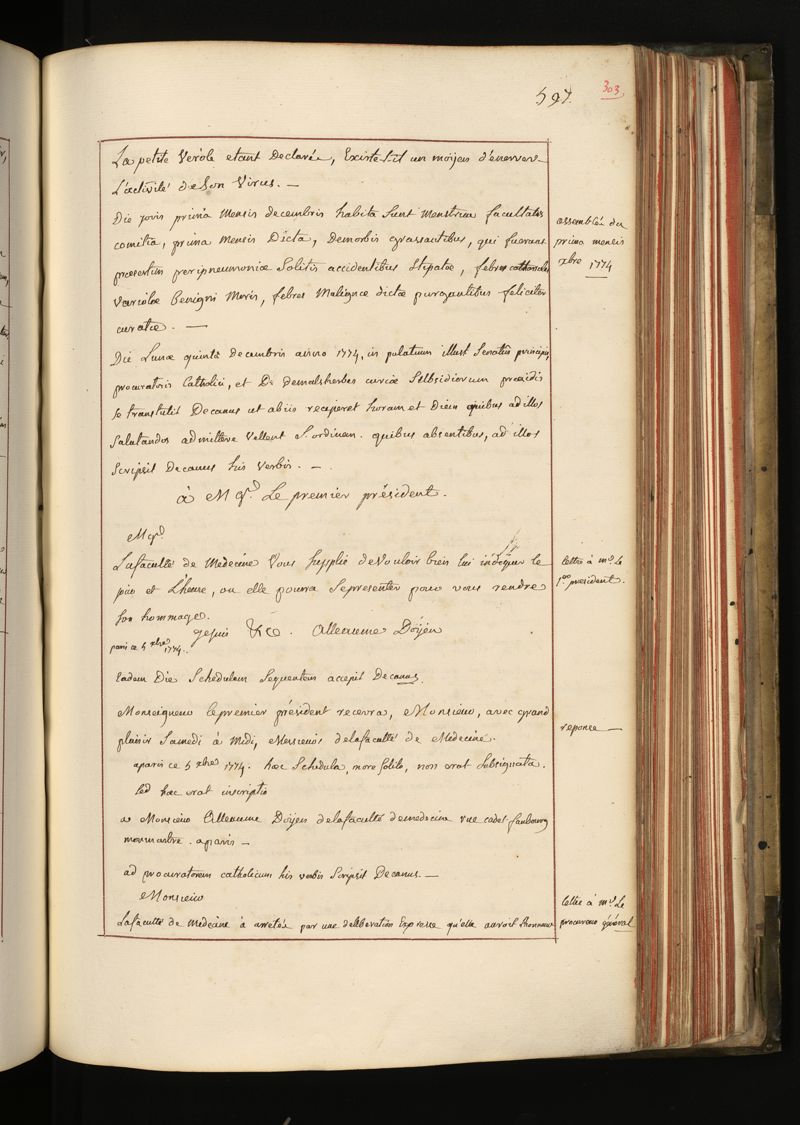 597.
303
La petite Verole etant Declarée, Existe-t-il un moÿen d'enerver
L'activité de Son Virus. —
Die jovis prima Mensis decembris habita Sunt Menstrua facultatis
comitia, prima Mensis Dicta, De morbis grassantibus, qui fuerunt
præsertim peripneumoniæ Solitis accidentibus Stipatæ, febres catharrales
Variolæ Benigni Moris, febres Malignæ dictæ purgantibus feliciter
curatæ. —
assemblée du
prima mensis
xbre 1774
Die Lunæ quintâ decembris anno 1774, in palatium illust Senatûs principis,
procuratoris Catholici, et D. demalsherbes curiæ Subsidiorum præsidis
se transtulit Decanus ut ab iis reciperet horam et Diem quibus ad illos
Salutandos admittere Vellent S. ordinem. quibus absentibus, ad illos
Scripsit Decanus his Verbis. —
à Mgr. Le premier président.
Mgr.
La faculté de Medecine Vous Supplie de Vouloir bien lui indiquer le
jour et L'heure, ou elle pourra Se presenter pour vous rendre
Son hommage.
je suis &ce. Alleaume Doÿen
paris ce 5 xbre 1774.
lettre à mr. Le
1er president.
Eadem Die Schedulam Sequentem accepit Decanus.
Monseigneur le premier président recevra, Monsieur, avec grand
plaisir Samedi à Midi, Messieurs de la faculté de Medecine.
a paris ce 5 xbre 1774. hæc Schedula, more Solito, non erat Subsignata.
Sed hæc erat inscriptio
reponse —
a Monsieur Alleaume Doÿen de la faculté de medecine rue cadet faubourg
monmartre. a paris —
ad procuratorem catholicum his verbis Scripsit Decanus. —
Monsieur
La faculté de Medecine à arretée par une deliberation Expresse qu'elle auroit l'honneur
lettre à mr. Le
procureur général